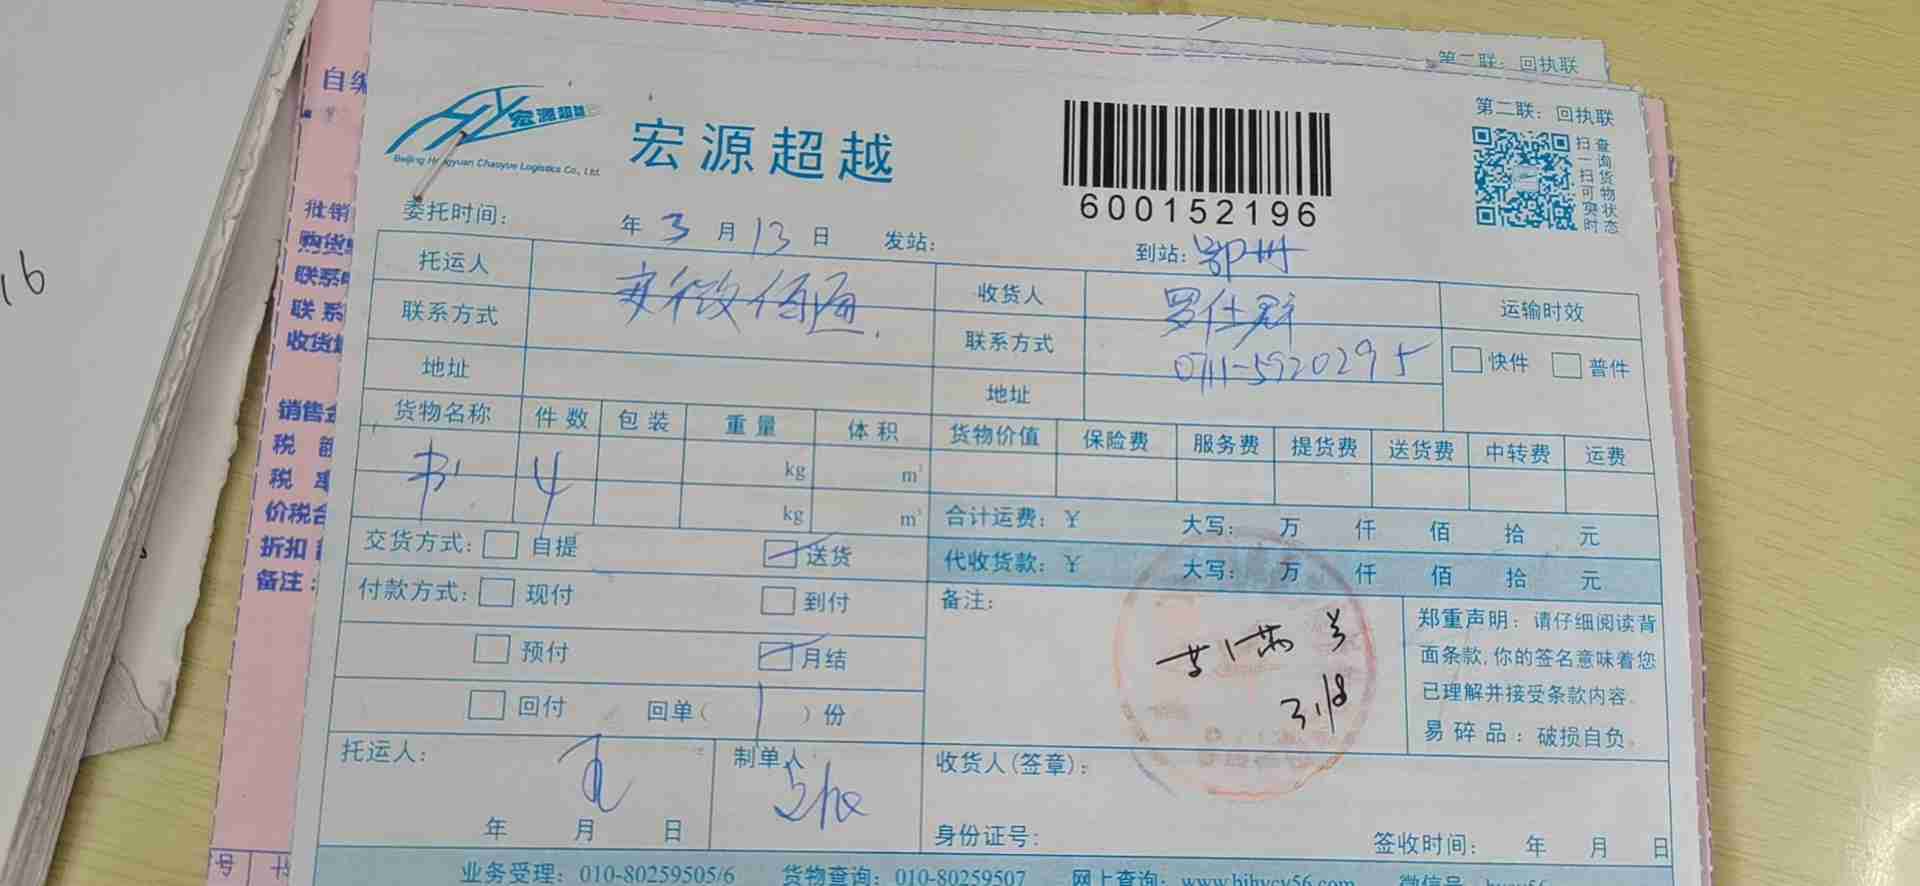 第二联：回执联
自编
宏源超越
Beijing Hongyuan Chaoyue Logistics Co., Ltd.
宏源超越
600152196
第二联：回执联
扫一扫可突时
查询货物状态
委托时间： 年 3 月 13 日 发站： 到站：鄂州
托运人 安徽佰通 收货人 罗仕群 运输时效
联系方式 联系方式 0711-5920295 快件 普件
地址 地址
货物名称 件数 包装 重量 体积 货物价值 保险费 服务费 提货费 送货费 中转费 运费
书 4 kg m³
kg m³ 合计运费：¥ 大写： 万 仟 佰 拾 元
交货方式： 自提 送货 代收货款：¥ 大写： 万 仟 佰 拾 元
付款方式： 现付 到付 备注：
预付 月结
回付 回单（ 1 ）份
3.18
郑重声明：请仔细阅读背
面条款,你的签名意味着您
已理解并接受条款内容。
易碎品：破损自负。
托运人： 制单人 收货人(签章)：
年 月 日 身份证号： 签收时间： 年 月 日
业务受理：010-80259505/6 货物查询：010-80259507 网上查询：www.bjhycy56.com 微信号：hycy56
批销
购货
联系
联系
收货
销售金
税 额
税 率
价税合
折扣
备注：
号
16